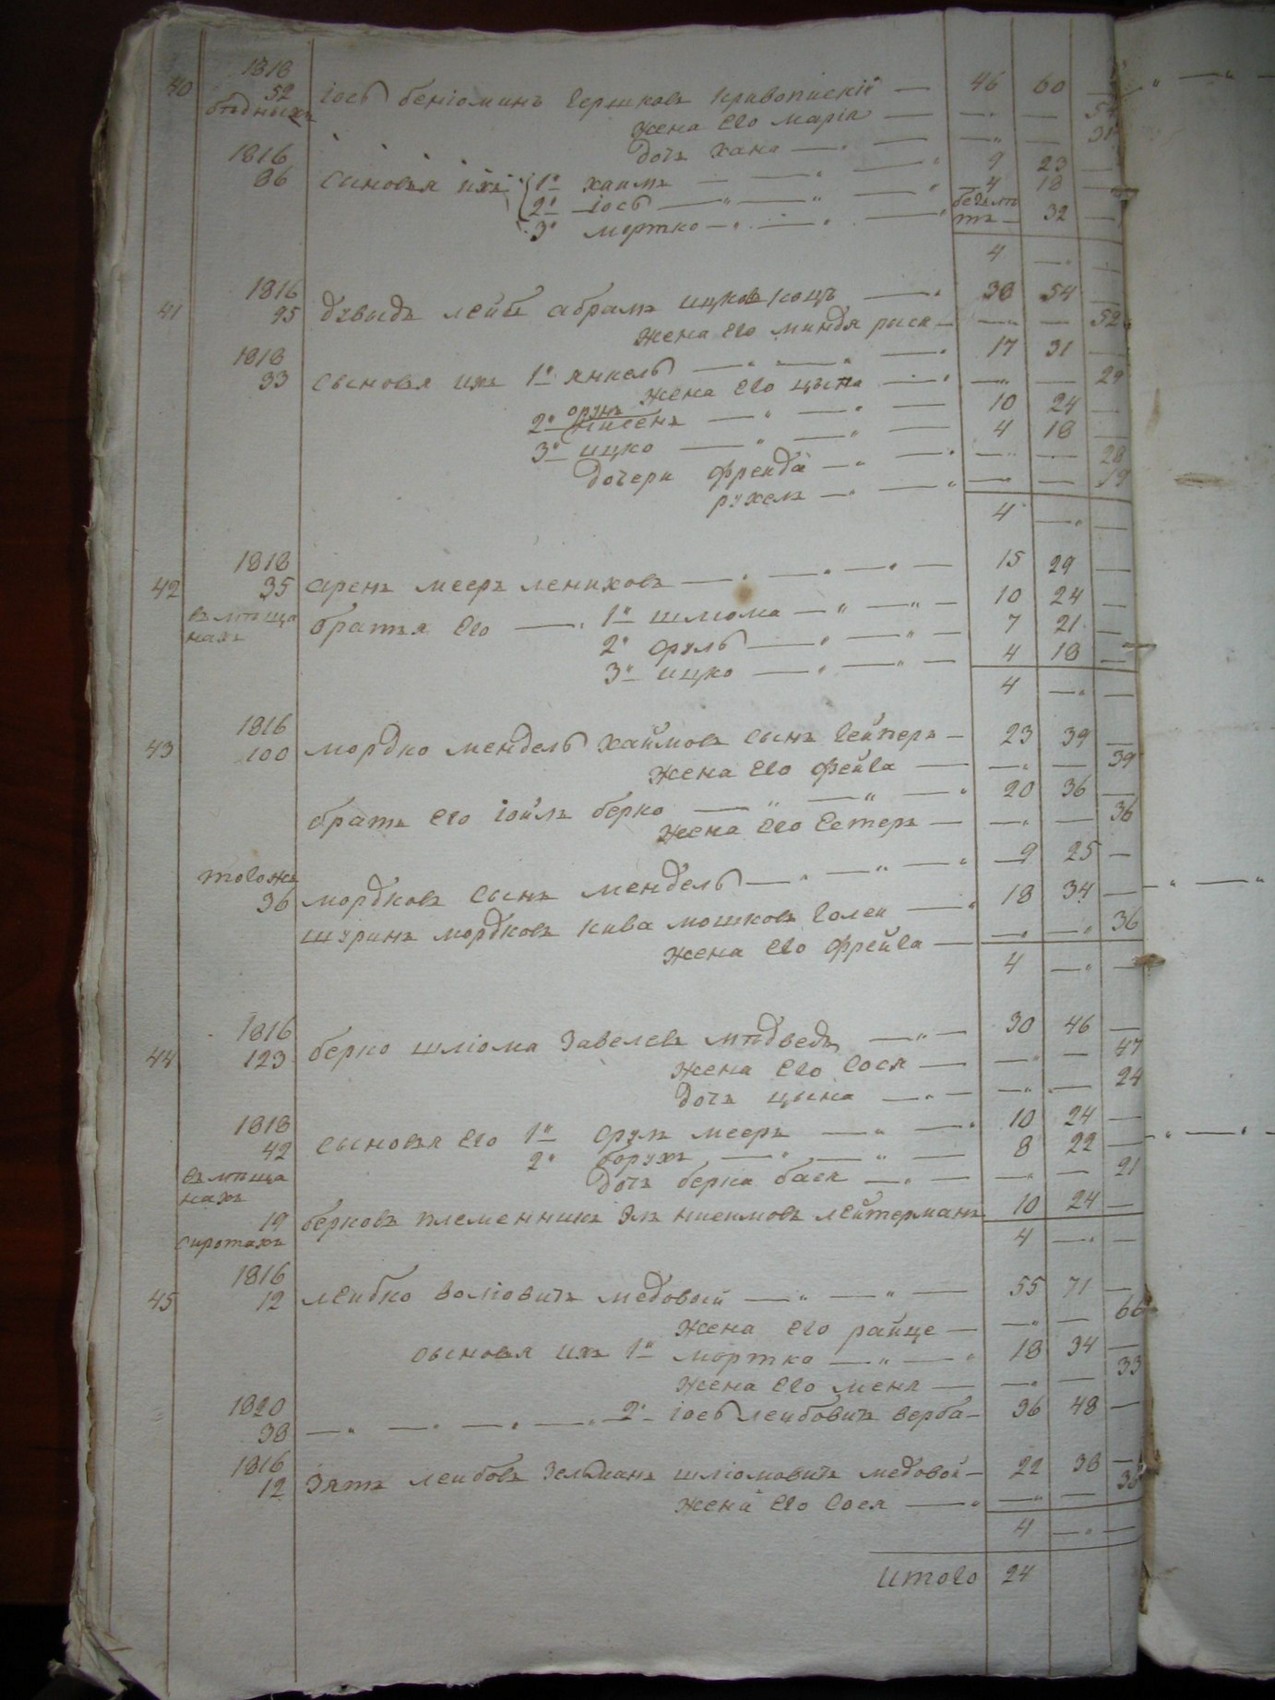 1818
40 52 іосъ беніоминъ Гершковъ Кривопискiй — 46 60 —
бѣдныхъ жена его марія — — — 54
дочь хана — — — 31
1816
36 синовья ихъ 1й хаимъ — 9 23 —
2й іось — 4 18 —
3й мортко — 32 —
4 — —
1816
41 95 дувыдъ лейбъ абрамъ ицковъ коцъ — 38 54 —
жена его миндя рися — — — 52
1818
33 сыновья ихъ 1й янкель — 17 31 —
жена его цыпа — — — 29
срулъ
2й — 10 24 —
3й ицко — 4 18 —
дочери фрейда — — — 28
рухель — — — 19
4 — —
1818
42 35 аренъ мееръ лениховъ — 15 29 —
въ мѣща
нахъ братья его — 1й шлиома — 10 24 —
2й сруль — 7 21 —
3й ицко — 4 18 —
4 — —
1816
43 100 мордко мендель хаймовъ сынъ Гейперъ — 23 39 —
жена его фейга — — — 39
братъ его іойлъ берко — 20 36 —
жена его естеръ — — — 36
тогожъ
36 мордковъ сынъ мендель — 9 25 —
шуринъ мордковъ кива мошковъ Голеи — 18 34 —
жена его фрейга — — — 36
4 — —
1816
44 123 берко шліома Завелевъ мѣдведь — 30 46 —
жена его сося — — — 47
дочь цына — — — 24
1818
42 сыновья его 1й срулъ мееръ — 10 24 —
2й борухъ — 8 22 —
въ мѣща
нахъ дочь берка бася — — — 21
19 берковъ племенникъ Эль нисимовъ лейтерманъ 10 24 —
сиротахъ 4 — —
1816
45 12 лейбко воліовичъ медовый — 55 71 —
жена его райце — — — 66
сыновья ихъ 1й мортко — 18 34 —
жена его меня — — — 33
1820
38 — 2й іось леибовичъ верба — 36 48 —
1816
12 Зять леибовъ Зельманъ шліомовичъ медовой — 22 38 —
жена его сося — — — 38
4 — —
итого 24